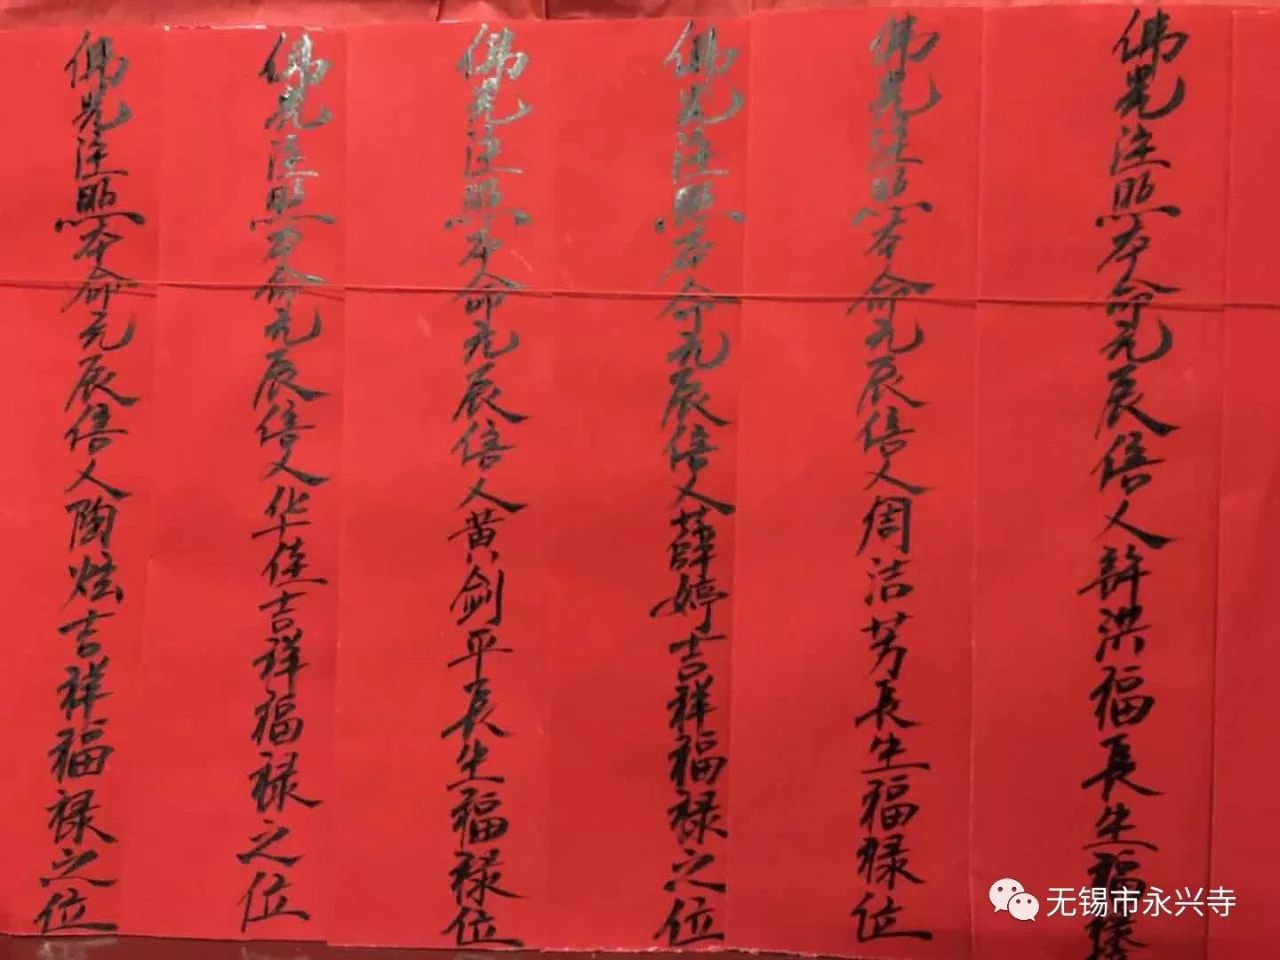 佛光注照本命元辰信人許洪福長生福祿
佛光注照本命元辰信人周洁芳長生福祿位
佛光注照本命元辰信人薛婷吉祥福祿之位
佛光注照本命元辰信人黄剑平長生福祿位
佛光注照本命元辰信人华佳吉祥福祿之位
佛光注照本命元辰信人陶炫吉祥福祿之位
无锡市永兴寺